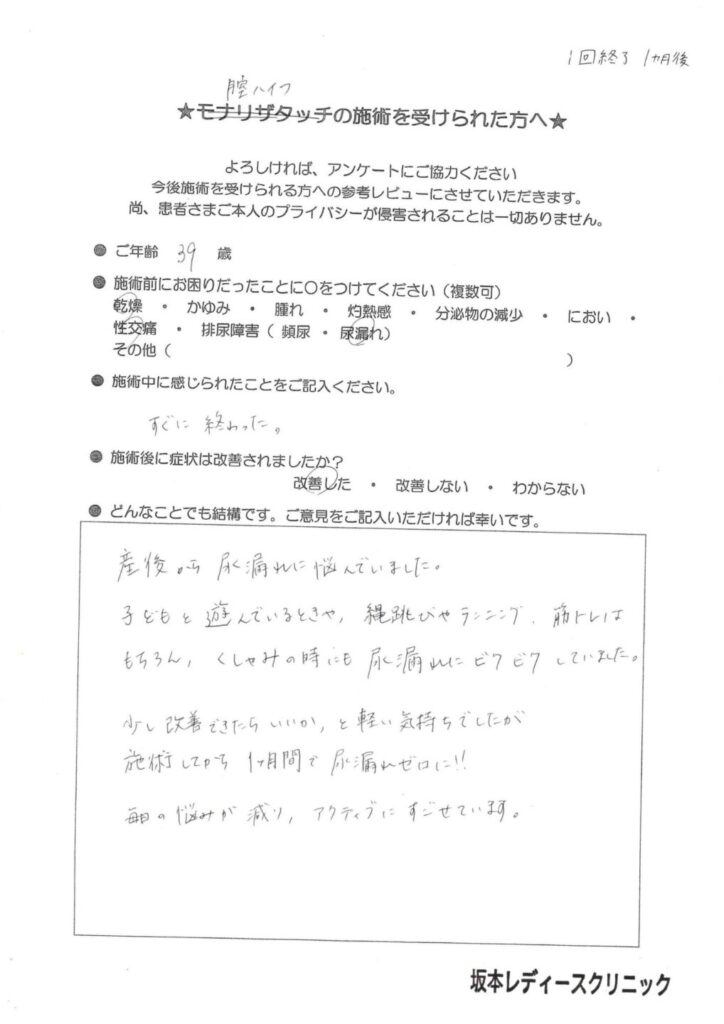 1回終了 1ヵ月後
膣ハイフ
★モナリザタッチの施術を受けられた方へ★
よろしければ、アンケートにご協力ください
今後施術を受けられる方への参考レビューにさせていただきます。
尚、患者さまご本人のプライバシーが侵害されることは一切ありません。
● ご年齢 39 歳
● 施術前にお困りだったことに○をつけてください（複数可）
乾燥 ・ かゆみ ・ 腫れ ・ 灼熱感 ・ 分泌物の減少 ・ におい ・
性交痛 ・ 排尿障害（ 頻尿 ・ 尿漏れ）
その他（ ）
● 施術中に感じられたことをご記入ください。
すぐに 終わった。
● 施術後に症状は改善されましたか？
改善した ・ 改善しない ・ わからない
● どんなことでも結構です。ご意見をご記入いただければ幸いです。
産後から 尿漏れに悩んでいました。
子どもと遊んでいるときや、縄跳びやランニング、筋トレは
もちろん、くしゃみの時にも 尿漏れにビクビクしていました。
少し改善できたらいいか、と軽い気持ちでしたが
施術してから 1ヶ月間で 尿漏れゼロに!!
毎日の悩みが減り、アクティブにすごせています。
坂本レディースクリニック